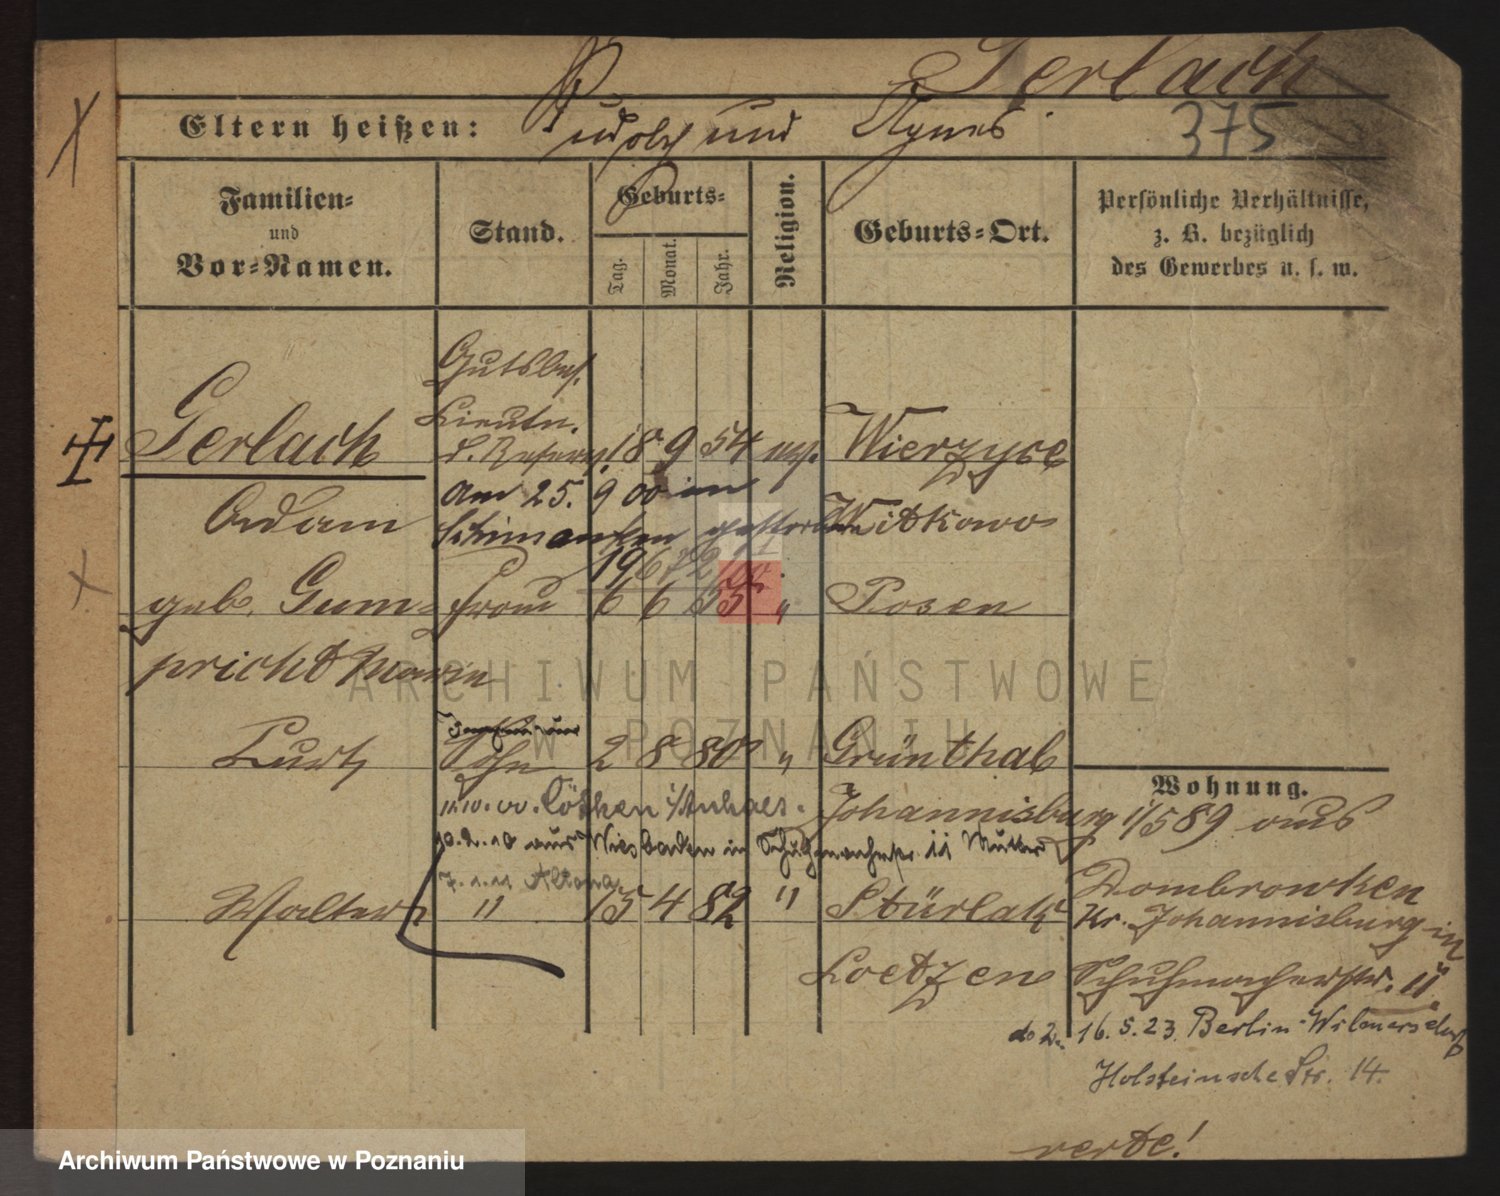 Gerlach
375
Eltern heißen: Rudolf und Agnes
Familien-
und
Vor-Namen.
Stand.
Geburts-
Tag.
Monat.
Jahr.
Religion.
Geburts-Ort.
Persönliche Verhältnisse,
z. B. bezüglich
des Gewerbes u. s. w.
Gutsbes.
Lieutn.
Gerlach d. Reserv. 18 9 54 Wierzyce
am 25. 9 00 in
Adam gestorben Witkowo
geb. Gum- Frau 6 6 55 " Posen
pricht Marie
Curt Sohn 2 8 80 " Grünthal
Wohnung.
11.10.00. Cöthen i/Anhalt. Johannisburg 1/5 89 aus
30.2.10 aus Wiesbaden in Schuhmacherstr. 11 Mutter
7.1.11 Altona Dombrowken
Walter " 15 4 82 " Stürlak Kr. Johannisburg in
Loetzen Schuhmacherstr. 11.
16.5.23. Berlin-Wilmersdorf
Holsteinsche Str. 14.
verte!
ARCHIWUM PAŃSTWOWE
W POZNANIU
Archiwum Państwowe w Poznaniu